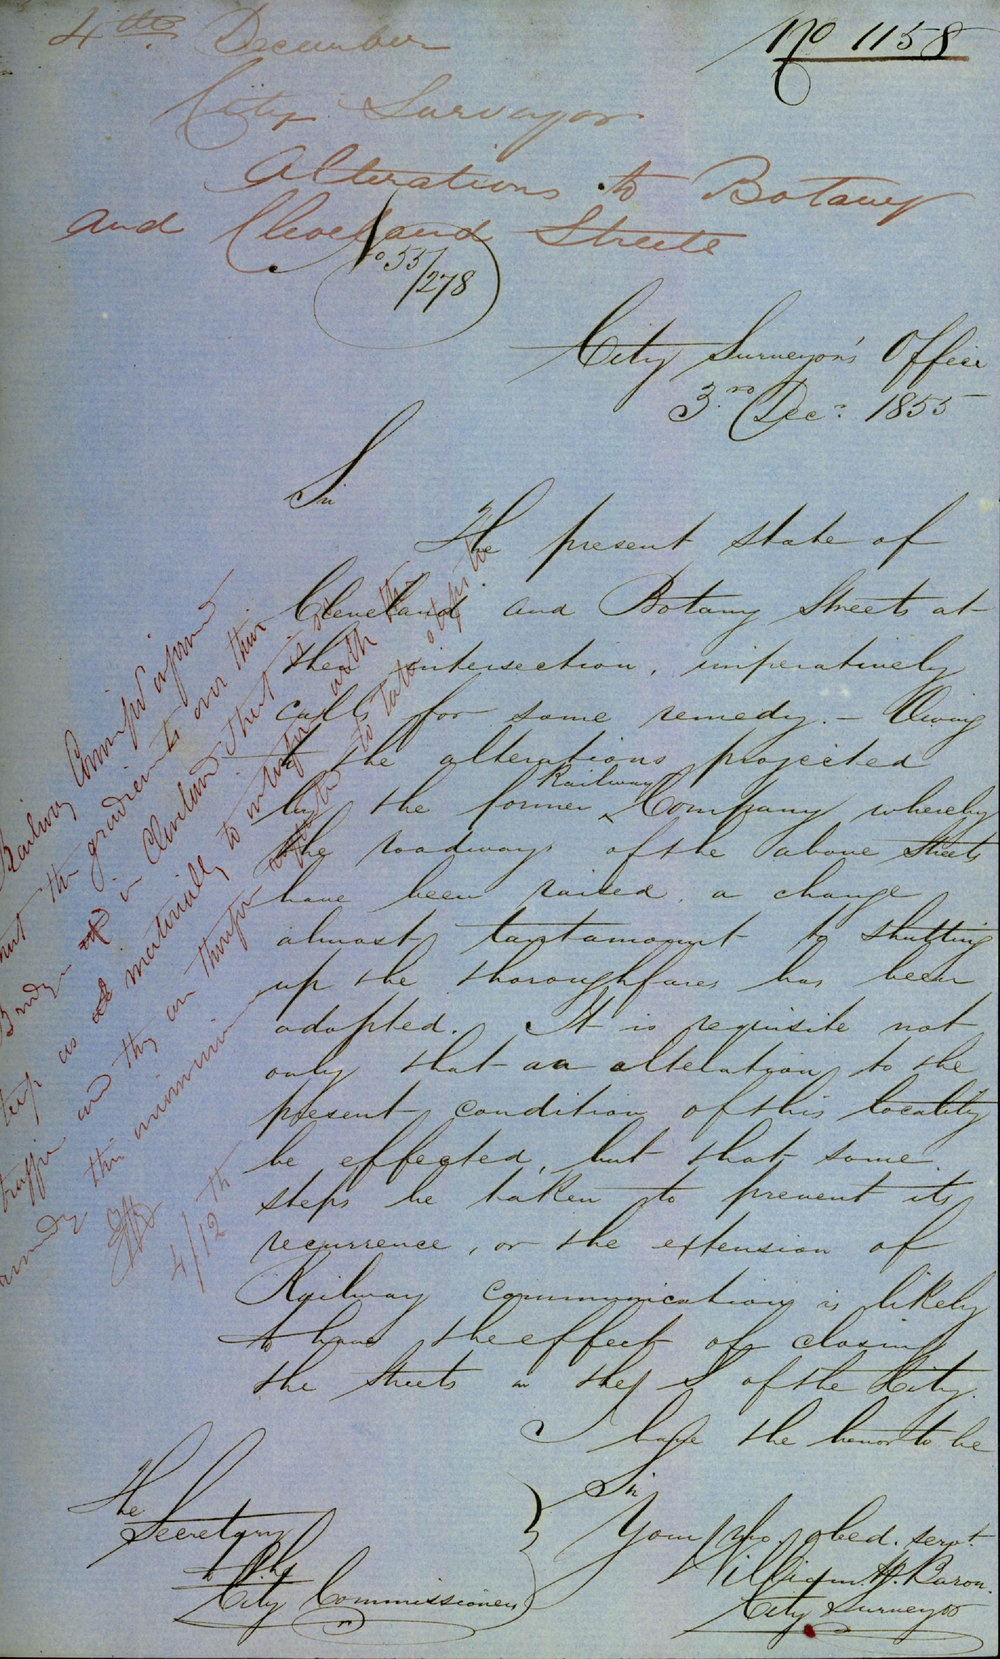 No 1158
4th December
City Surveyor
Alterations to Botany
and Cleveland Streets
No 55/278
City Surveyor's Office
3rd Dec. 1855
Sir
The present state of
Cleveland and Botany Streets at
their intersection, imperatively
calls for some remedy. - Owing
to the alterations projected
by the former Railway Company whereby
the roadways of the above Streets
have been raised, a change
almost tantamount to shutting
up the thoroughfares has been
adopted. It is requisite not
only that an alteration to the
present condition of this locality
be effected, but that some
steps be taken to prevent its
recurrence, or the extension of
Railway communication is likely
to have the effect of closing
the Streets in the S of the City.
I have the honor to be
Sir
Your mo. obed. servt.
William H. Baron.
City Surveyor
The
Secretary
to the
City Commissioners
Railway
that the gradients on their
Bridge in Cleveland Street is so
steep as materially to interfere with the
traffic and they are therefore to take steps to
remedy this
4/12th